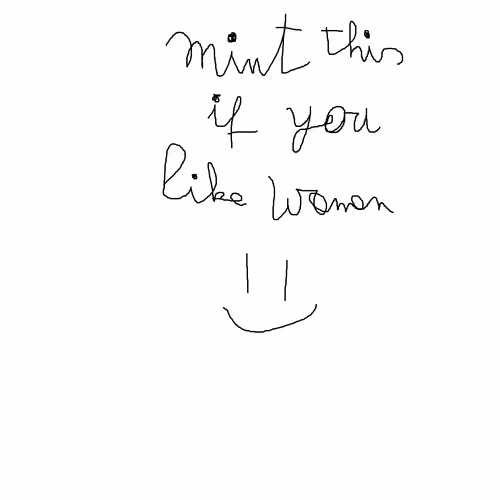 mint this
if you
like woman